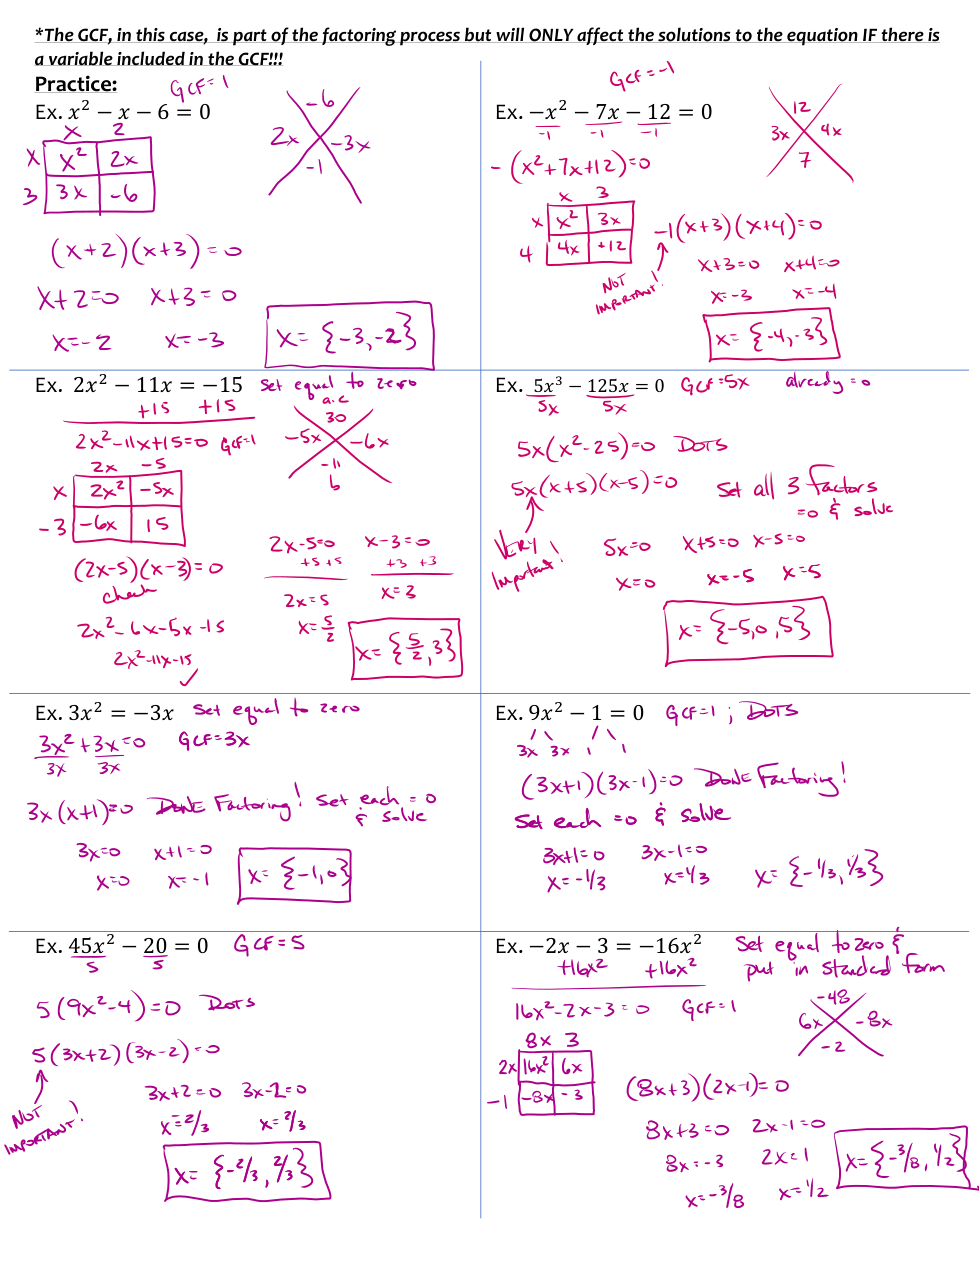 *The GCF, in this case, is part of the factoring process but will ONLY affect the solutions to the equation IF there is
a variable included in the GCF!!!
Practice:
GCF=1
Ex. x² − x − 6 = 0
x 2
x x² 2x
3 3x -6
-6
2x -3x
-1
(x+2)(x+3)=0
x+2=0 x+3=0
x=-2 x=-3
x= {-3,-2}
GCF=-1
Ex. −x² − 7x − 12 = 0
-1 -1 -1
-(x²+7x+12)=0
12
3x 4x
7
x 3
x x² 3x
4 4x +12
-1(x+3)(x+4)=0
NOT
IMPORTANT!
x+3=0 x+4=0
x=-3 x=-4
x= {-4,-3}
Ex. 2x² − 11x = −15 Set equal to zero
+15 +15
2x²-11x+15=0 GCF=1
a.c
30
-5x -6x
-11
b
2x -5
x 2x² -5x
-3 -6x 15
(2x-5)(x-3)=0
check
2x²-6x-5x-15
2x²-11x-15
2x-5=0 x-3=0
+5 +5 +3 +3
2x=5 x=3
x=5/2
x= {5/2,3}
Ex. 5x³ − 125x = 0 GCF=5x already=0
5x 5x
5x(x²-25)=0 DOTS
5x(x+5)(x-5)=0 Set all 3 factors
=0 & solve
VERY
Important!
5x=0 x+5=0 x-5=0
x=0 x=-5 x=5
x= {-5,0,5}
Ex. 3x² = −3x Set equal to zero
3x²+3x=0 GCF=3x
3x 3x
3x(x+1)=0 DONE Factoring! Set each=0
& solve
3x=0 x+1=0
x=0 x=-1
x= {-1,0}
Ex. 9x² − 1 = 0 GCF=1; DOTS
3x 3x 1 1
(3x+1)(3x-1)=0 DONE Factoring!
Set each =0 & solve
3x+1=0 3x-1=0
x=-1/3 x=1/3
x= {-1/3,1/3}
Ex. 45x² − 20 = 0 GCF=5
5 5
5(9x²-4)=0 DOTS
5(3x+2)(3x-2)=0
NOT
IMPORTANT!
3x+2=0 3x-2=0
x=-2/3 x=2/3
x= {-2/3,2/3}
Ex. −2x − 3 = −16x² Set equal to zero &
+16x² +16x² put in standard form
16x²-2x-3=0 GCF=1
-48
6x -8x
-2
8x 3
2x 16x² 6x
-1 -8x -3
(8x+3)(2x-1)=0
8x+3=0 2x-1=0
8x=-3 2x=1
x=-3/8 x=1/2
x= {-3/8,1/2}